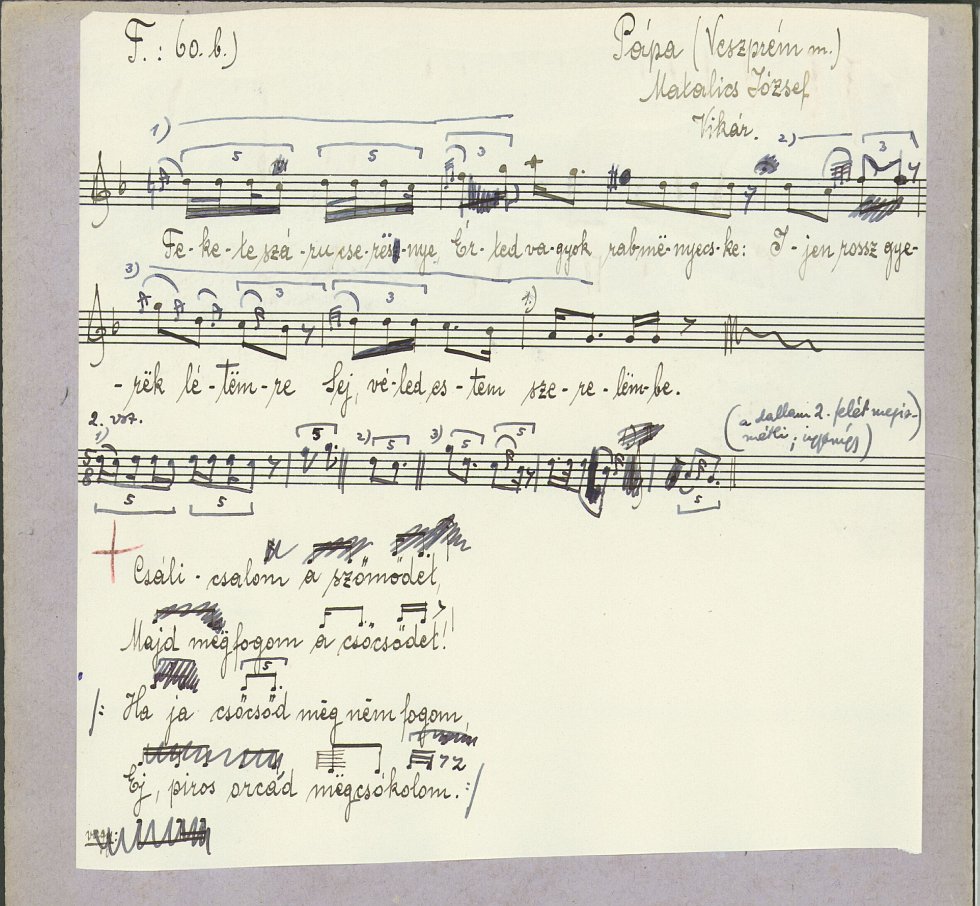 F.: 60. b.)
Pápa (Veszprém m.)
Matalics József
Vikár.
1)
5
5
3
2)
3
Fe-ke-te szá-ru cse-rës-nye, Ér-ted va-gyok rab më-nyecs-ke: I-jen rossz gye-
3)
3
3
1.)
-rëk lé-tëm-re Sej, vé-led es-tem sze-re-lëm-be.
2. vsz.
(a dallam 2. felét megis-
métli;
1)
5
2)
5
3)
5
5
5
8
5
5
5
Csáli-csalom a szömödet,
Majd mëgfogom a csöcsödet!
5
/: Ha ja csöcsöd mëg nëm fogom,
Ej, piros orcád mëgcsókolom. :/